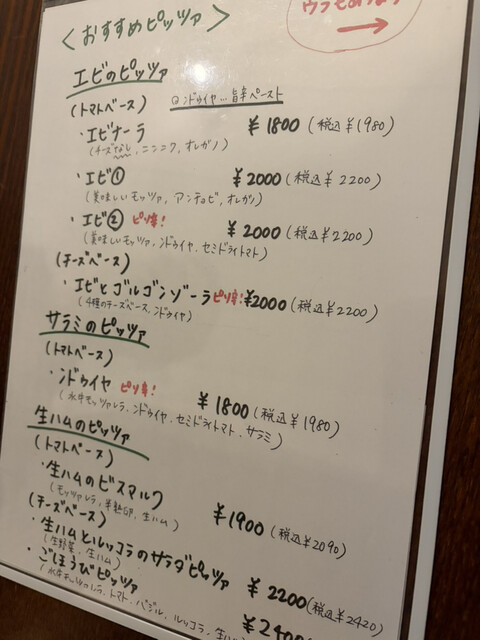 ウラもあります
<おすすめピッツァ>
エビのピッツァ
(トマトベース) @ンドゥイヤ…旨辛ペースト
・エビナーラ ¥1800(税込¥1980)
(チーズなし、ニンニク,オレガノ)
・エビ① ¥2000(税込¥2200)
(美味しいモッツァ,アンチョビ,オレガノ)
・エビ② ピリ辛! ¥2000(税込¥2200)
(美味しいモッツァ,ンドゥイヤ,セミドライトマト)
(チーズベース)
・エビとゴルゴンゾーラピリ辛!¥2000(税込¥2200)
(4種のチーズベース,ンドゥイヤ)
サラミのピッツァ
(トマトベース)
・ンドゥイヤ ピリ辛! ¥1800(税込¥1980)
(水牛モッツァレラ、ンドゥイヤ、セミドライトマト、サラミ)
生ハムのピッツァ
(トマトベース)
・生ハムのビスマルク ¥1900(税込¥2090)
(モッツァレラ,半熟卵,生ハム)
(チーズベース)
・生ハムとルッコラのサラダピッツァ ¥2200(税込¥2420)
(生野菜,生ハム)
・ごほうびピッツァ ¥2400
(水牛モッツァレラ、トマト、バジル、ルッコラ、生ハ